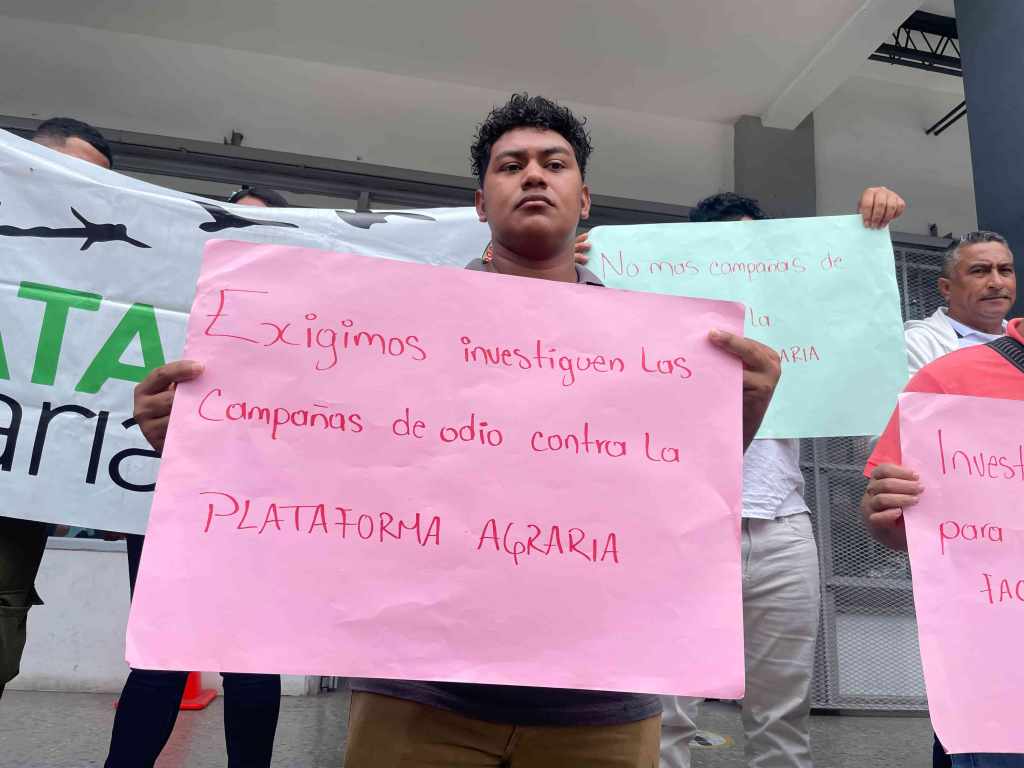 Exigimos investiguen las
Campañas de odio contra la
PLATAFORMA AGRARIA
No mas campañas de
la
ARIA
Invest
para
FAC
ATA
aria